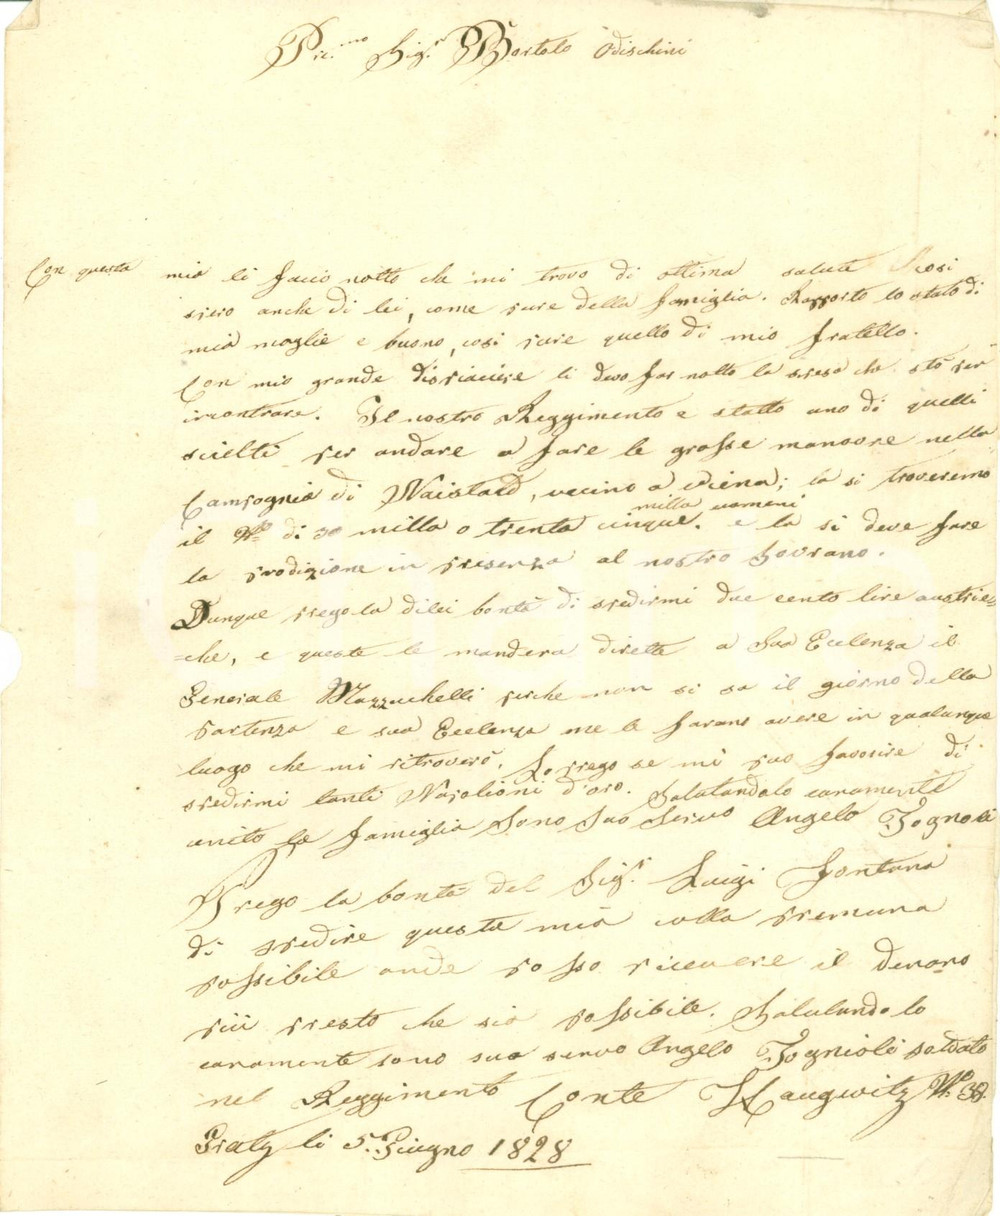 Pre.mo Sig.r Bortolo Odischini
Con questa mia li faccio notto che mi trovo di ottima salute Cosi
spero anche di lei, come pure della famiglia. Rapporto lo stato di
mia moglie e buono, cosi pure quello di mio fratello.
Con mio grande dispiacere li devo far notto la spesa che stò per
incontrare. Il nostro Reggimento e statto uno di quelli
scielti per andare a fare le grosse manovre nella
Campagnia di Naistadt, vecino a Viena; la si troveremo
il N.o di 30 milla o trenta cinque milla uomeni. e la si deve fare
la prodizione in presenza al nostro Sovrano.
Dunque prego la dilei bontà di spedirmi due cento lire austria=
=che, e queste le mandera dirette a Sua Ecelenza il
Generale Mazzuchelli perche non si sa il giorno della
partenza e sua Ecelenza me le farano avere in qualunque
luogo che mi ritroverò. Lo prego se mi puo favorire di
spedirmi tanti Napolioni d'oro. Salutandolo caramente
unito la famiglia Sono Suo Servo Angelo Tognoli
Prego la bontà del Sig.r Luigi Fontana
di spedire questa mia colla premura
possibile onde posso ricevere il denaro
più presto che sia possibile. Salutandolo
caramente sono suo servo Angelo Tognioli soldato
nel Reggimento Conte Haugwitz N.o 38.
Gratz li 5. Giugno 1828